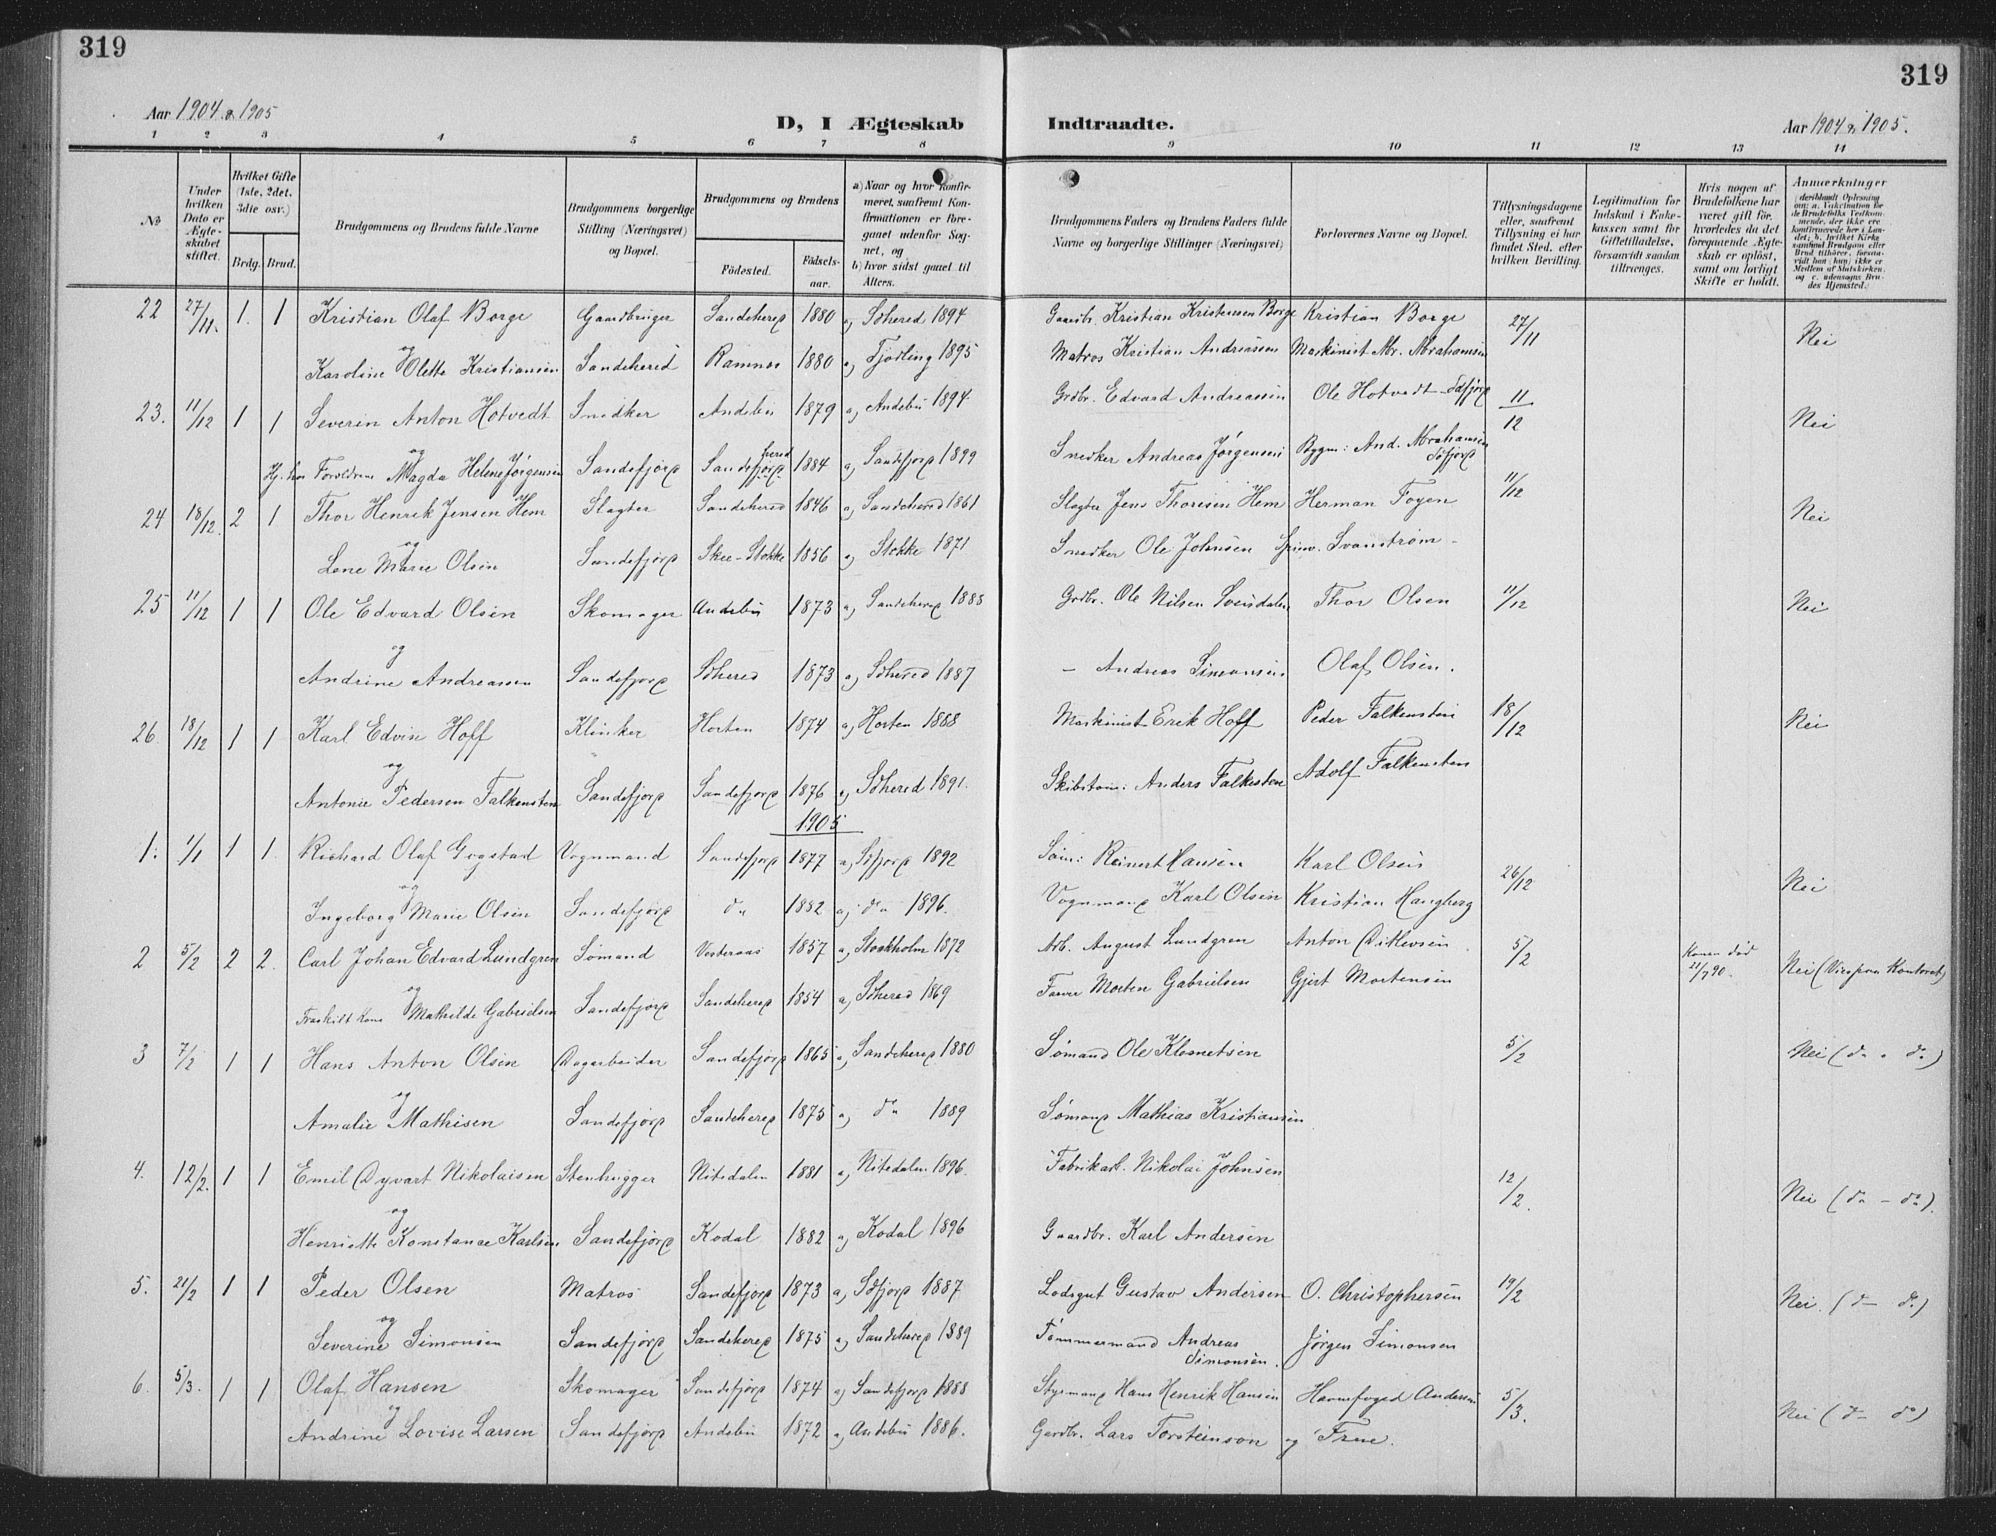 319
319
Aar 1904 & 1905
D, I Ægteskab Indtraadte.
Aar 1904 & 1905.
1 2 3 4 5 6 7 8 9 10 11 12 13 14
№
Under hvilken Dato er Ægteskabet stiftet.
Hvilket Gifte (1ste, 2det, 3die osv.)
Brdg. Brud.
Brudgommens og Brudens fulde Navne
Brudgommens borgerlige Stilling (Næringsvei) og Bopæl.
Brudgommens og Brudens
Fødested. Fødselsaar.
a) Naar og hvor konfirmeret, saafremt Konfirmationen er foregaaet udenfor Sognet, og
b) hvor sidst gaaet til Alters.
Brudgommens Faders og Brudens Faders fulde Navne og borgerlige Stillinger (Næringsvei)
Forlovernes Navne og Bopæl.
Tillysningsdagene eller, saafremt Tillysning ei har fundet Sted, efter hvilken Bevilling.
Legitimation for Indskud i Enkekassen samt for Giftetilladelse, forsaavidt saadan tiltrænges.
Hvis nogen af Brudefolkene har været gift før, hvorledes da det foregaaende Ægteskab er opløst, samt om lovligt Skifte er holdt.
Anmærkninger (deriblandt Oplysning om: a. Vakcination for de Brudefolks Vedkommende, der ikke ere konfirmerede her i Landet; b. hvilket Kirkesamfund Brudgom eller Brud tilhører, forsaavidt han (hun) ikke er Medlem af Statskirken, og c. udensogns Brudes Hjemsted.)
22 27/11. 1. 1 Kristian Olaf Borge Gaardbruger Sandeherep 1880 a) Sdhered 1894 Gaardbr. Kristian Kristensen Borge Kristian Borge 27/11 Nei
og
Karoline Olette Kristiansen Sandeherid Ramnes 1880 a) Fjødling 1895 Matros Kristian Andreassen Maskinist Abr. Abrahamsen
23. 11/12 1 1 Severin Anton Hotvedt Snedker Andebu 1879 a) Andebu 1894 Grdbr. Edvard Andreassen Ole Hotvedt - Sdfjorp 11/12 Nei
og
Hj. hos Forældrene Magda Helene Jørgensen Sandefjorp Sandefjorp hered 1884 a) Sandefjorp 1899 Snedker Andreas Jørgensen Bygm: And. Abrahamsen Sdfjorp
24 18/12. 2 1 Thor Henrik Jensen Hem Slagter Sandehered 1846 a) Sandehered 1861 Slagter Jens Thoresen Hem Herman Foyen 11/12 Nei
og
Lene Marie Olsen Sandefjorp Skee-Stokke 1856 a) Stokke 1871 Snedker Ole Johnsen Svanstrøm -
25 11/12 1 1 Ole Edvard Olsen Skomager Andebu 1873 a) Sandeherep 1888 Grdbr. Ole Nilsen Svensdalen Thor Olsen 11/12 Nei
og
Andrine Andreassen Sandefjorp Sdhered 1873 a) Sdhered 1887 - Andreas Simonsen Olaf Olsen.
26 18/12 1 1 Karl Edvin Hoff Klinker Horten 1874 a) Horten 1888 Maskinist Erik Hoff Peder Falkensten 18/12 Nei
og
Antonie Pedersen Falkensten Sandefjorp Sandefjorp 1876 a) Sdhered 1891. Skibstøm: Anders Falkesten Adolf Falkensten
1905
1. 1/1 1 1. Richard Olaf Gogstad Vognmand Sandefjorp 1877 a) Sdfjorp 1892 Søm: Reinert Hansen Karl Olsen 26/12 Nei
og
Ingeborg Marie Olsen Sandefjorp do 1882 a) do 1896. Vognmanp Karl Olsen Kristian Haugberg
2 5/2 2 2. Carl Johan Edvard Lundgren Sømand Vesteraas 1857 a) Stockholm 1872 Arb. August Lundgren Anton Ditlevsen 5/2 Konen død 21/7 90. Nei (Viespem Kontoret)
og
Fraskilt Kone Mathilde Gabrielsen Sandefjorp Sandeherep 1854 a) Sdhered 1869 Farver Morten Gabrielsen Gjert Mortensen
3 7/2 1 1 Hans Anton Olsen Dagarbeider Sandefjorp 1865 a) Sandeherep 1880 Sømand Ole Klemetsen 5/2 Nei (do - do)
og
Amalie Mathisen Sandefjorp Sandeherep 1875 a) do 1889 Sømanp Mathias Kristiansen
4. 12/2. 1 1 Emil Dyvart Nikolaisen Stenhugger Nitedalen 1881 a) Nitedalen 1896. Fabrikarb. Nikolai Johnsen 12/2. Nei (do - do).
og
Henriette Konstance Karlsen Sandefjorp Kodal 1882 a) Kodal 1896 Gaardbr. Karl Andersen
5. 21/2 1 1 Peder Olsen Matros Sandefjorp 1873 a) Sdfjorp 1887 Lodsgut Gustav Andersen O. Christophersen 19/2 Nei. (do - do)
og
Severine Simonsen Sandefjorp Sandeherep 1875 a) Sandeherep 1889 Tømmermand Andreas Simonsen. Jørgen Simonsen
6. 5/3. 1 1 Olaf Hansen Skomager Sandefjorp 1874 a) Sandefjorp 1888 Styrmanp Hans Henrik Hansen Havnefoged Andersen 5/3. Nei (do - do)
og
Andrine Lovise Larsen Sandefjorp Andebu 1872 a) Andebu 1886. Gardbr. Lars Torsteinson og Frue.